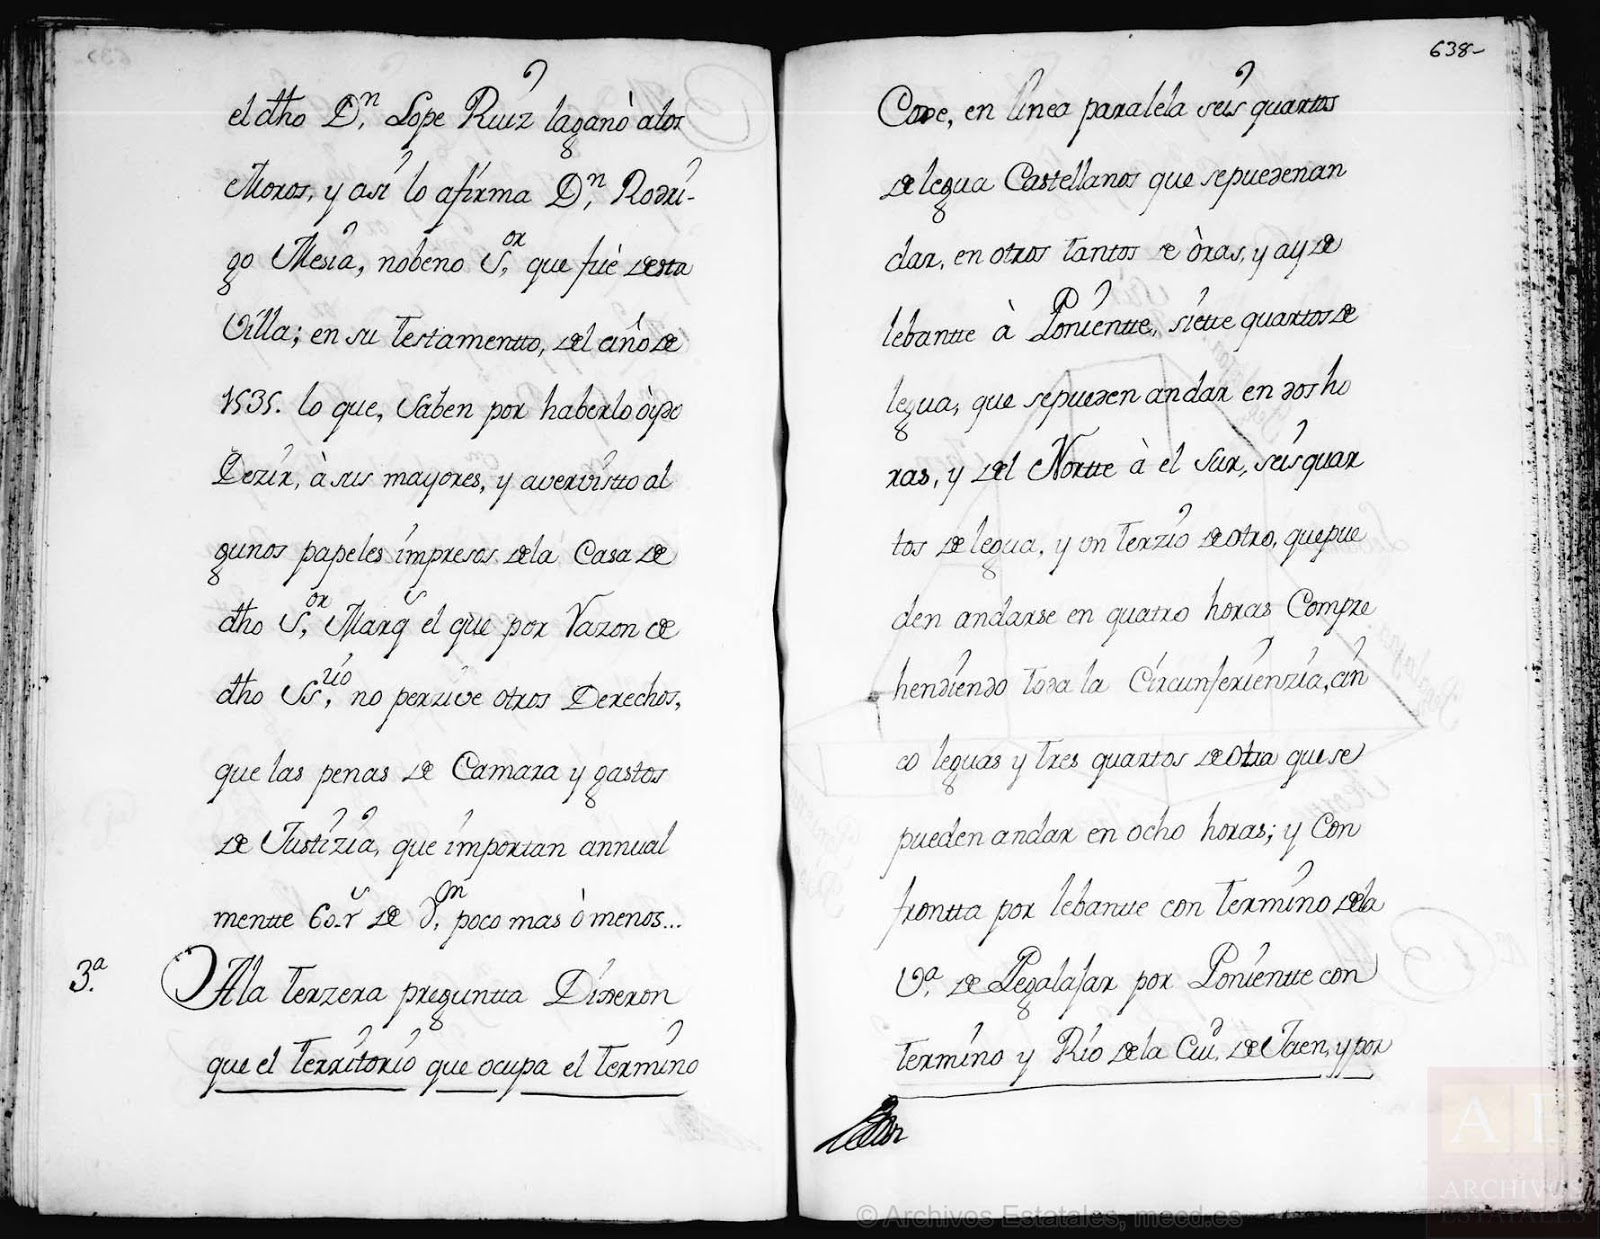 el dho Dn. Lope Ruiz laganò alos
Moros, y asi lo afirma Dn. Rodri-
go Mesia, nobeno Sor. que fuè desta
Villa; en su Testamentto, del año de
1535. lo que, saben por haberlo òydo
Dezir, à sus mayores, y avervistto al
gunos papeles impresos dela Casa de
dho Sor. Marqs el que por Razon de
dho Ssrio. no perzive otros Derechos,
que las penas de Camara y gastos
de Justizia, que importan annual
mentte 60 rs de Von. poco mas ò menos...
3.ª Ala Terzera preguntta Dixeron
que el Territorio que ocupa el Termino
638-
Coxe, en linea paralela seis quartos
de legua Castellanos que sepuedenan
dar, en otros tantos de òras, y ay de
lebantte à Ponientte, siette quartos de
legua, que sepueden andar en dos ho
ras, y del Nortte à el Sur, seis quar
tos de legua, y un Terzio de otro, quepue
den andarse en quatro horas Compre
hendiendo toda la Circunferienzia, cin
co leguas y tres quartos de otra que se
pueden andar en ocho horas; y Con
frontta por lebantte con Termino dela
Vª. de Pegalajar por Ponientte con
Termino y Rio dela Ciud. de Jaen, y por
© Archivos Estatales, mecd.es
AE
ARCHIVOS
ESTATALES